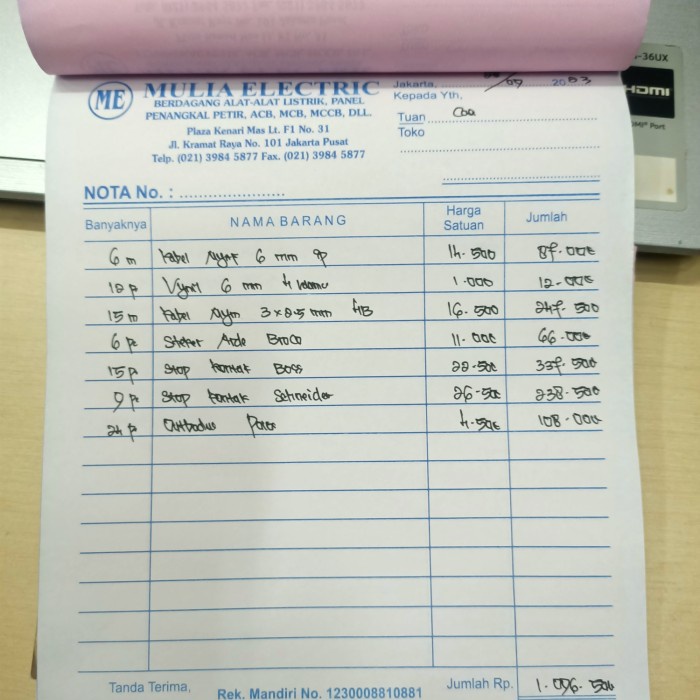 -36UX
HDMI
HDMI® Port
ME
MULIA ELECTRIC
BERDAGANG ALAT-ALAT LISTRIK, PANEL
PENANGKAL PETIR, ACB, MCB, MCCB, DLL.
Plaza Kenari Mas Lt. F1 No. 31
Jl. Kramat Raya No. 101 Jakarta Pusat
Telp. (021) 3984 5877 Fax. (021) 3984 5877
Jakarta, 2023
Kepada Yth,
Tuan
Toko
NOTA No. :
Banyaknya NAMA BARANG Harga Satuan Jumlah
6 m kabel nym 6 mm 14.500 87.000
12 p Vynil 6 mm 1.000 12.000
15 m kabel nym 3x2.5 mm 16.500 247.500
6 p Steker Arde Broco 11.000 66.000
15 p Stop kontak Boss 22.500 337.500
9 p Stop kontak Schneider 26.500 238.500
24 p Outbodus 4.500 108.000
Tanda Terima,
Rek. Mandiri No. 1230008810881
Jumlah Rp. 1.096.500